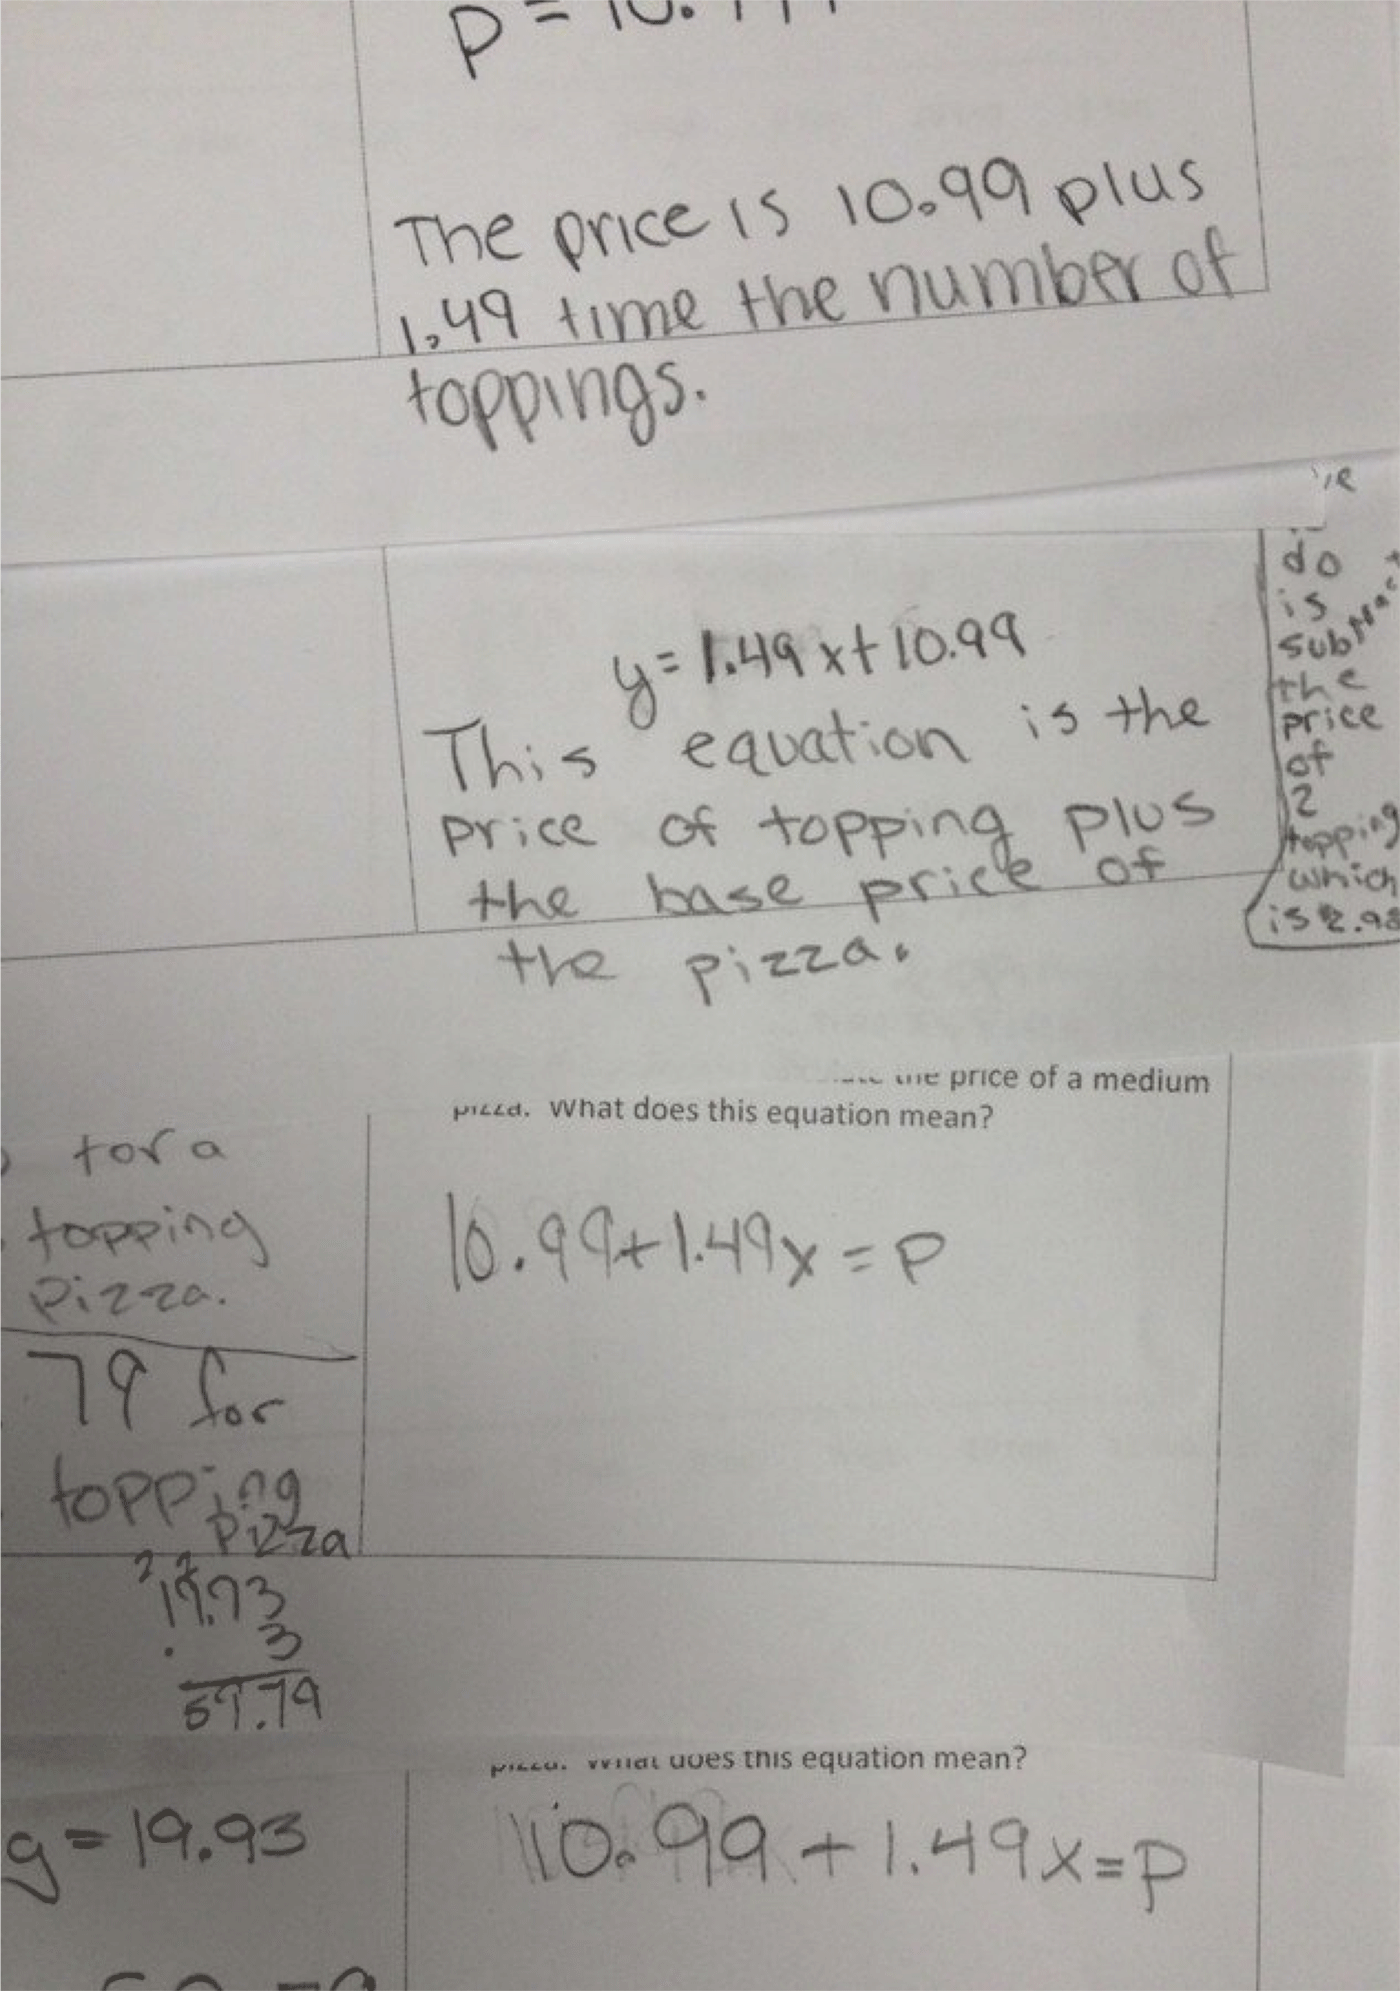 P = 10.
The price is 10.99 plus
1.49 time the number of
toppings.
do
is
subtract
the
price
of
2
topping
which
is 2.98
y = 1.49x + 10.99
This equation is the
price of topping plus
the base price of
the pizza.
the price of a medium
pizza. What does this equation mean?
for a
topping
pizza.
10.99 + 1.49x = P
79 for
topping
pizza
19.93
3
59.79
pizza. What does this equation mean?
g = 19.93
10.99 + 1.49x = P